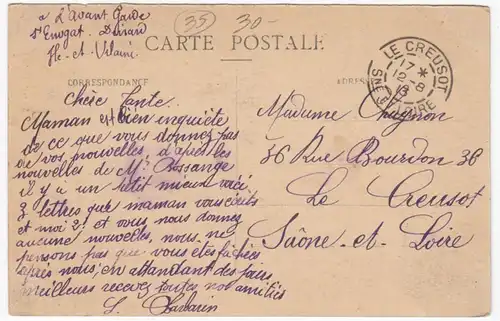 à L'Avant Garde
St Enogat - Dinard
Ile-et-Vilaine
35
30-
CARTE POSTALE
CORRESPONDANCE
ADRESSE
LE CREUSOT
17 *
12-8
SAÔNE ET LOIRE
Chère Tante.
Maman est bien inquiète
de ce que vous donnez pas
de vos nouvelles, d'après les
nouvelles de Me Bossange
il y a un petit mieux voici
3 lettres que maman vous écrit
et moi 2! et vous nous donnez
aucune nouvelles, nous ne
pensons pas que vous êtes fâchées
après nous, en attendant des jours
meilleurs recevez toutes nos amitiés
S. Barbarin
Madame
36 Rue Bourdon 36
Le Creusot
Saône-et-Loire